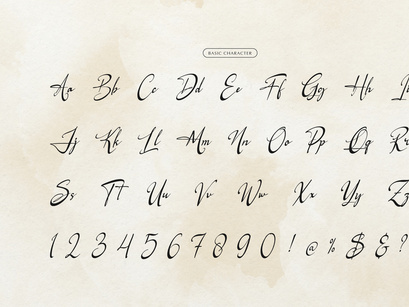 BASIC CHARACTER
Aa Bb Cc Dd Ee Ff Gg Hh I
Jj Kk Ll Mm Nn Oo Pp Qq Rr
Ss Tt Uu Vv Ww Xx Yy Zz
1 2 3 4 5 6 7 8 9 0 ! @ % $ & ?